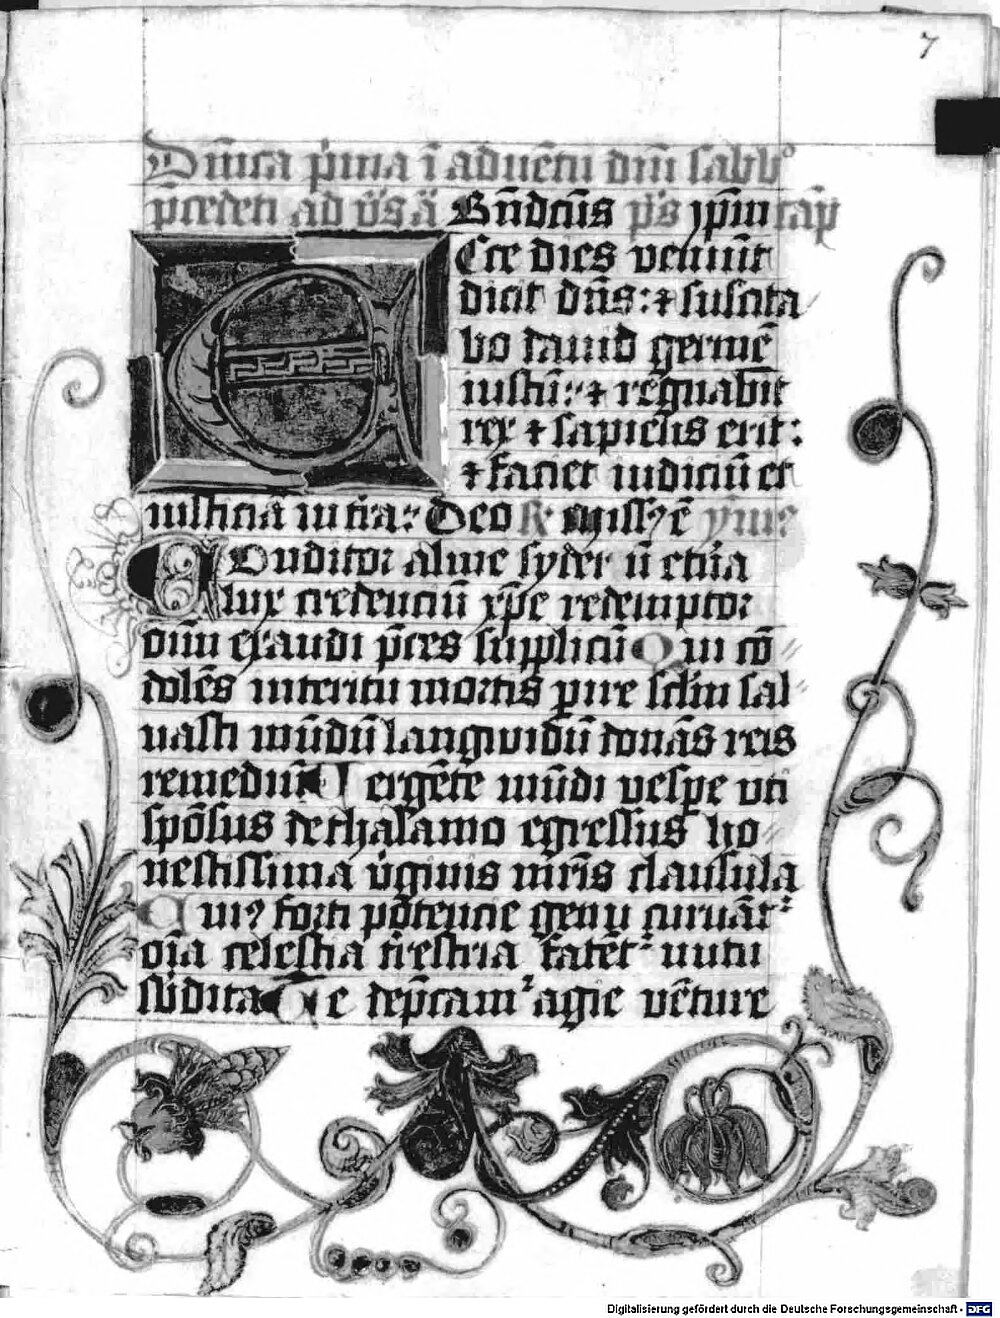 7
Dn̄ica p̄ma ī aduētu dnī sabb°
p̄cedēti ad v̄s ā Bn̄dc̄us p̄s ip̄m cap̄
Ecce dies veniūt
dicit dn̄s: ⁊ suscita
bo dauid germē
iustū: ⁊ regnabit
rex ⁊ sapiens erit:
⁊ faciet iudiciū et
iusticiā in t̄ra: Deo R Missꝰ ē ym̄s
Conditor alme syder̄ ū et̄na
lux credenciū xp̄e redemptor
oīm exaudi p̄ces supplicū Qui cō
dolēs interitu mortis p̄ire sc̄lm sal
uasti mūdū languidū donās reis
remediū Uergēte mūdi vespe vti
spōsus de thalamo egressus ho
nestissima v̄ginis mr̄is clausula
Cuiꝰ forti potencie genu curuāt᷑
oīa celestia t̄restria fatēt᷑ nutu
subdita Te dep̄cam᷑ agie vēture
Digitalisierung gefördert durch die Deutsche Forschungsgemeinschaft - DFG